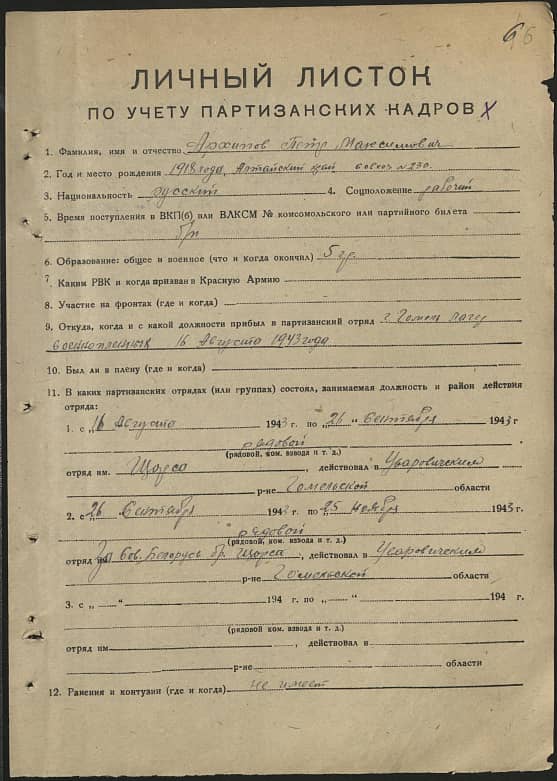 66
ЛИЧНЫЙ ЛИСТОК
ПО УЧЕТУ ПАРТИЗАНСКИХ КАДРОВ
1. Фамилия, имя и отчество Архипов Петр Максимович
2. Год и место рождения 1918 года, Алтайский край, совхоз №230.
3. Национальность русский 4. Соцположение рабочий
5. Время поступления в ВКП(б) или ВЛКСМ № комсомольского или партийного билета
б/п
6. Образование: общее и военное (что и когда окончил) 5 гр.
7. Каким РВК и когда призван в Красную Армию
8. Участие на фронтах (где и когда)
9. Откуда, когда и с какой должности прибыл в партизанский отряд г. Гомель лагер
военнопленных 16 Августа 1943 года
10. Был ли в плену (где и когда)
11. В каких партизанских отрядах (или группах) состоял, занимаемая должность и район действия
отряда:
1. с „16 Августа 1943 г. по „26 “ Сентября 1943 г
рядовой
(рядовой, ком. взвода и т. д.)
отряд им. Щорса, действовал в Уваровичским
р-не Гомельской области
2. с „26 Сентября 1943 г. по „25 Ноября 1943 г.
рядовой
(рядовой, ком. взвода и т. д.)
отряд За Сов. Белорусь бр. Щорса, действовал в Уваровичским
р-не Гомельской области
3. с „ — “ 194 г. по „ — “ 194 г.
(рядовой, ком. взвода и т. д.)
отряд им , действовал в
р-не области
12. Ранения и контузии (где и когда) не имеет